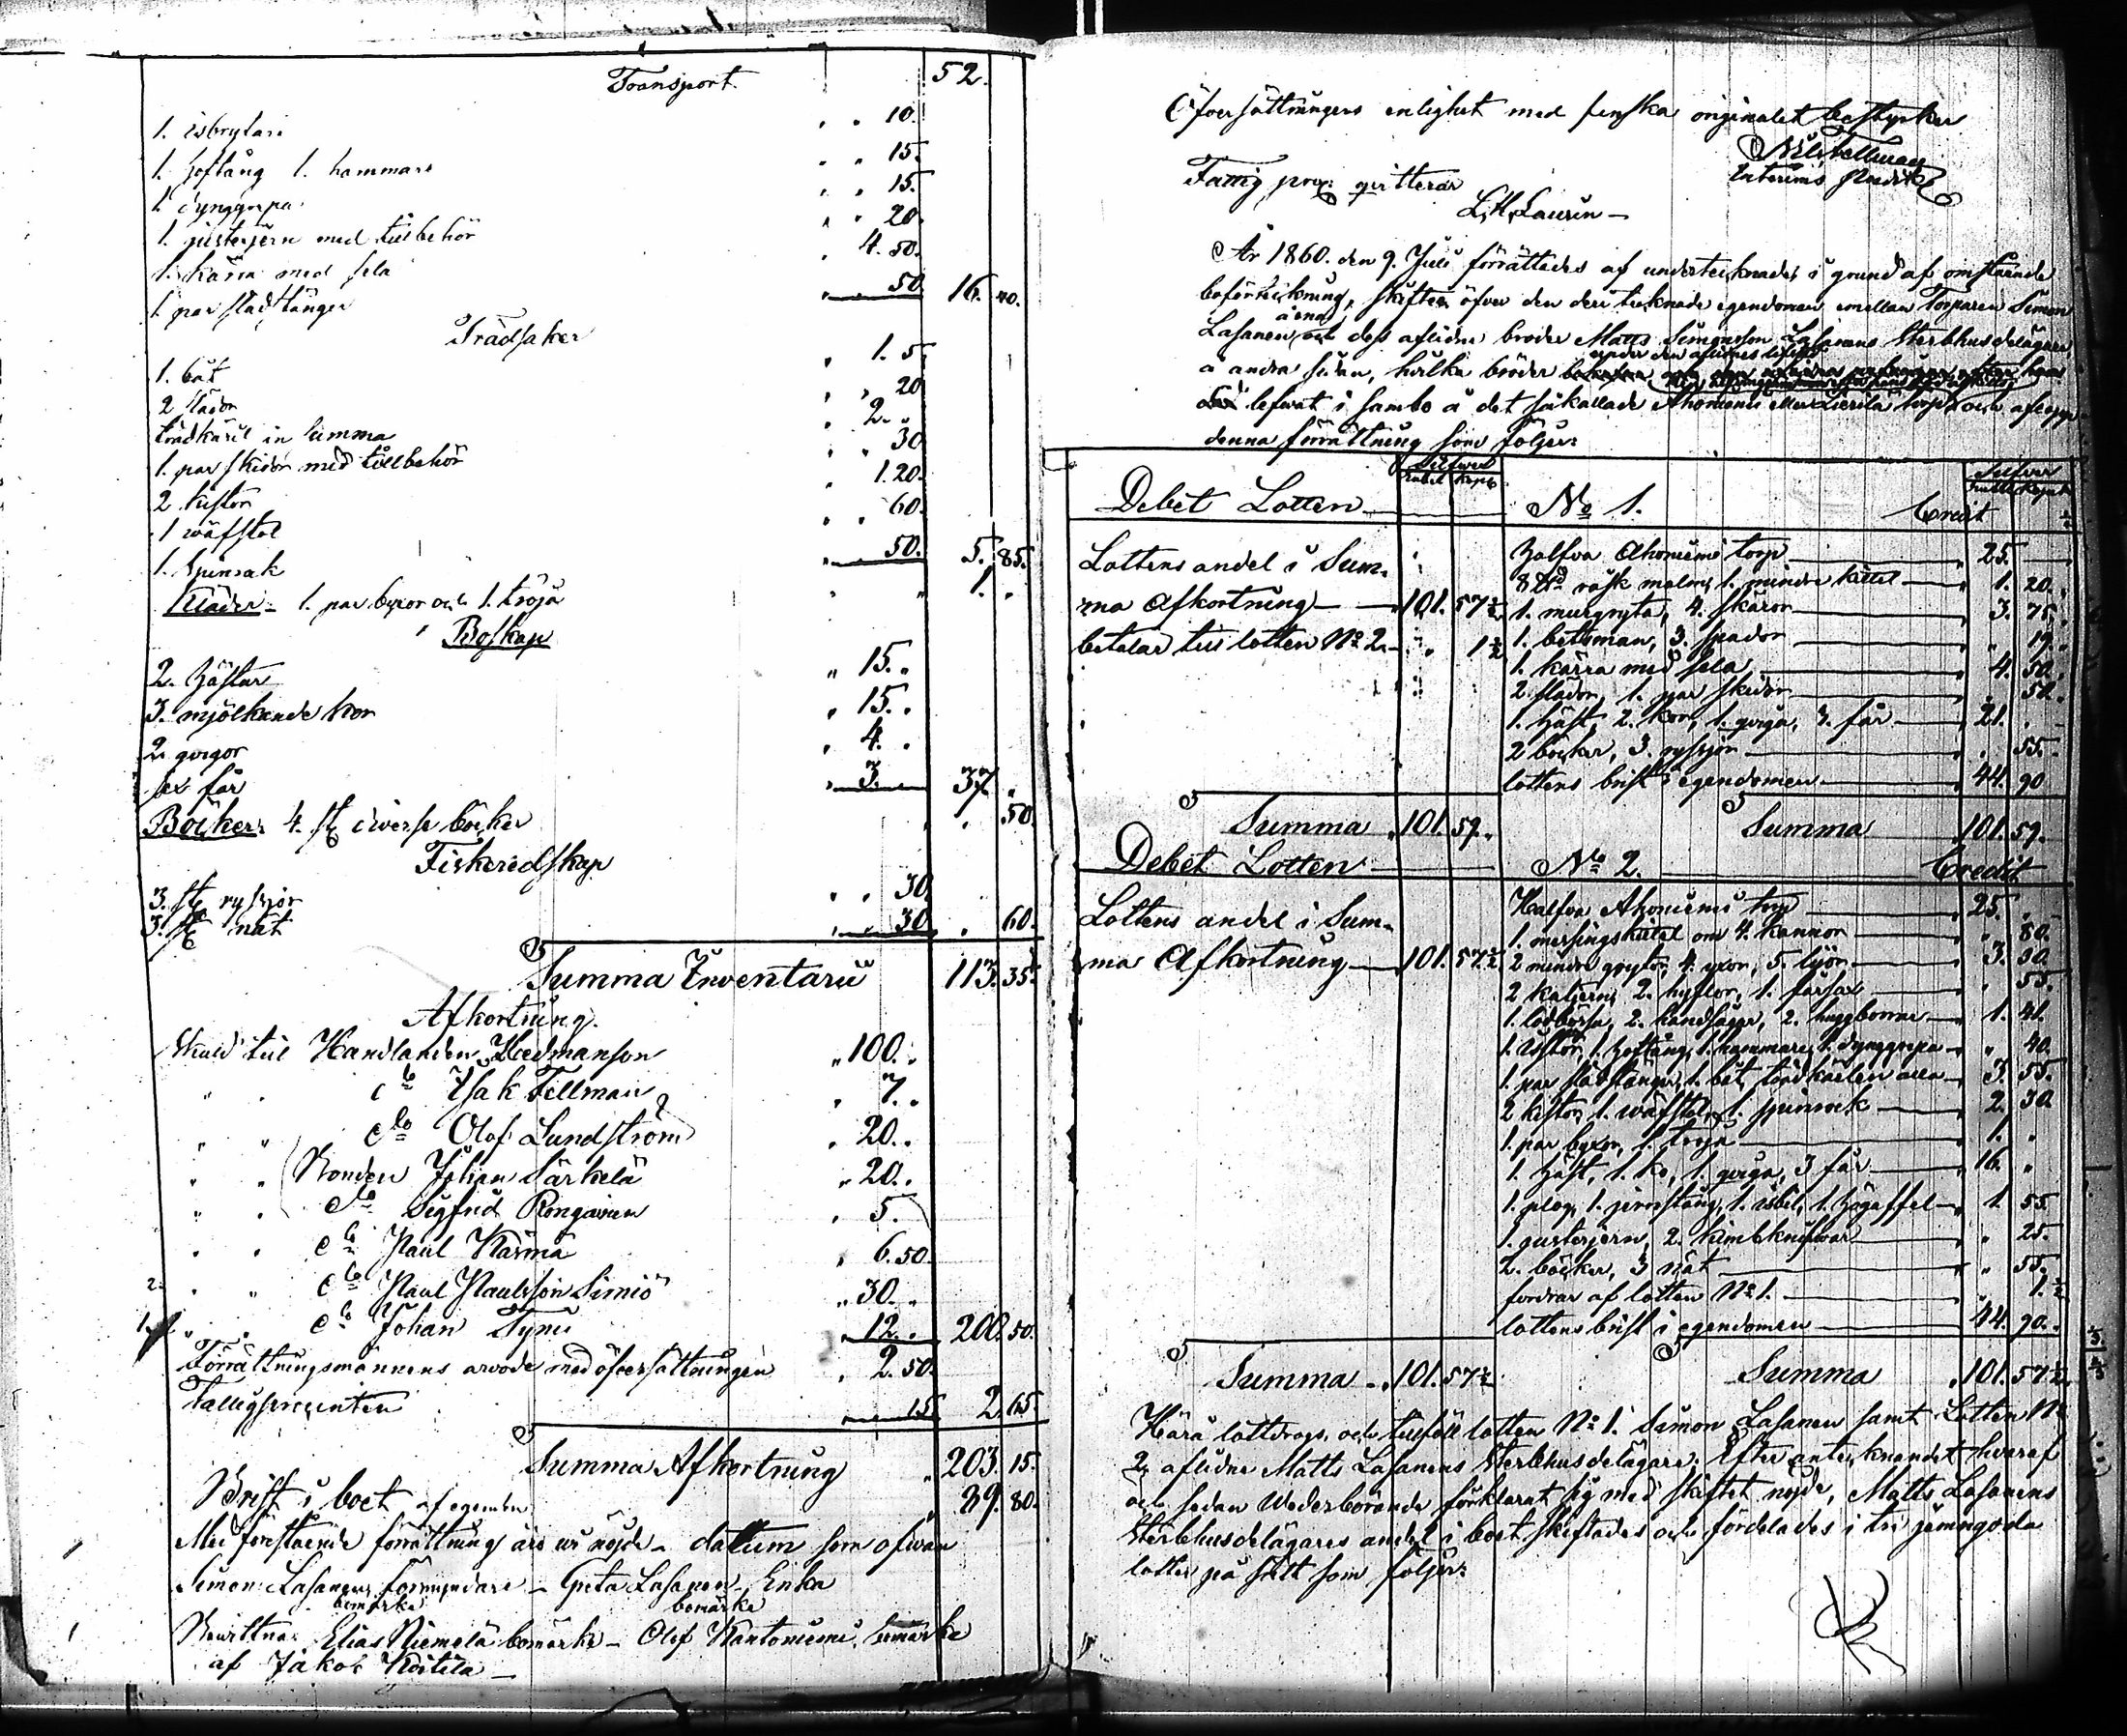 Transport. 52.
1. isbrytare " " 10.
1. hoftång 1. hammare " " 15.
1. dynggrepa " " 15.
1. justerjern med tillbehör " " 20.
1. kärra med sela " 4. 50.
1. par stadstänger " " 50. 16. 40.
Trädsaker
1. båt " 1. 5.
2 slädor " " 20
trädkäril in summa " 2. "
1. par skidor med tillbehör " " 30
2 kistor " 1. 20.
1 wäfstol " " 60.
1. Spinrak " " 50. 5. 85.
Kläder - 1. par byxor och 1. tröja " " 1. "
Boskap
2. hästar " 15. "
3. mjölkande kor " 15. "
2. qvigor " 4. "
sex får " 3. 37. "
Böcker: 4. st diverse böcker " 50.
Fiskeredskap
3. st ryssjor " " 30.
3. st nät " " 30. " 60.
Summa Inventarii 113. 35.
Afkortning.
Skuld till Handlanden Hedmanson " 100. "
" " do Isak Fellman " 7. "
" " do Olof Lundström " 20. "
" " Bonden Johan Särkelä " 20. "
" " do Sigfrid Rongainen " 5.
" " do Paul Karmä " 6. 50.
2. " " do Paul Paulsson Simiö " 30. "
1. " " do Johan Tyni " 12. " 200. 50.
Förrättningsmännens arvode med öfversättningen " 2. 50.
Fattigprocenten " 15 2. 65.
Summa Afkortning " 203. 15.
Brist i boet af egendom " 89. 80.
Med förestående förrättning äro wi nöjde - datum som ofwan
Simon Lasanen, förmyndare - Greta Lasanen, Enka
bomärke bomärke
Bewittna: Elias Niemelä bomärke - Olof Kantoniemi, bomärke
af Jakob Koitila -
Öfversättningens enlighet med finska originalet bestyrker
Nils Fellman
Interims
Fattig proc: qvitterar
L. H. Laurin -
År 1860. den 9. Juli förrättades af undertecknade, i grund af omstående
boförteckning, skifte öfver den deri tecknade egendomen emellan Torparen Simon
Lasanen å ena och dess aflidne broder Matts Simonsson Lasanens Sterbhusdelägare
å andra sidan, hvilka bröder under den aflidnes lifstid
lefwat i sambo å det såkallade Ahoniemi eller torp, och aflopp
denna förrättning som följer:
Silfver Silfver
Rubel Kopek Rubel Kopek
Debet Lotten No 1. Credit
Lottens andel i Sum- Halfva Ahoniemi torp 25. -
8 råsk malm, 1. mindre kittel 1. 20.
ma Afkortning 101. 57½ 1. murgryta, 4. skäror 3. 75.
betalar till lotten No 2. " 1½ 1. bettsman, 3. spador " 19.
1. kärra med sela 4. 50.
2 slädor, 1. par skidor " 50.
1. häst, 2. kor, 1. qviga, 3. får 21. -
2 böcker, 3. ryssjor " 55.
lottens brist i egendomen 44. 90
Summa 101. 59. Summa 101. 59.
Debet Lotten No 2. Credit
Lottens andel i Sum- Halfva Ahoniemi torp 25. "
1. messingskittel om 4. kannor " 80.
ma Afkortning 101. 57½ 2 mindre grytor, 4. yxor, 5. lijor 3. 30.
2 katjern, 2. hyflor, 1. fårsax " 55.
1. lodbössa, 2. handsågar, 2. huggborrar 1. 41.
1. hoftång, 1. hammare, 1. dynggrepa " 40.
1. par stadstänger, 1. båt, trädkärlen alla 3. 55.
2 kistor, 1. wäfstol, 1. spinrock 2. 30.
1. par byxor, 1. tröja 1. "
1 häst, 1. ko, 1. qviga, 3 får 16. "
1. plog, 1. jernstång, 1. isbil, 1. högaffel 1. 55
1. justerjern, 2. kimbknifwar " 25.
2. böcker, 3 nät " 55.
fordrar af lotten No 1. " 1.½
lottens brist i egendomen 44. 90.
Summa 101. 57½ Summa 101. 57½
Härå lottdrogs och tillföll lotten No 1. Simon Lasanen samt Lotten No
2. aflidne Matts Lasanens Sterbhusdelägare. Efter antecknandet hvaraf
och sedan Wederbörande förklarat sig med skiftet nöjde, Matts Lasanens
Sterbhusdelägares andel i boet skiftades och fördelades i tri jemngoda
lotter på sätt som följer: